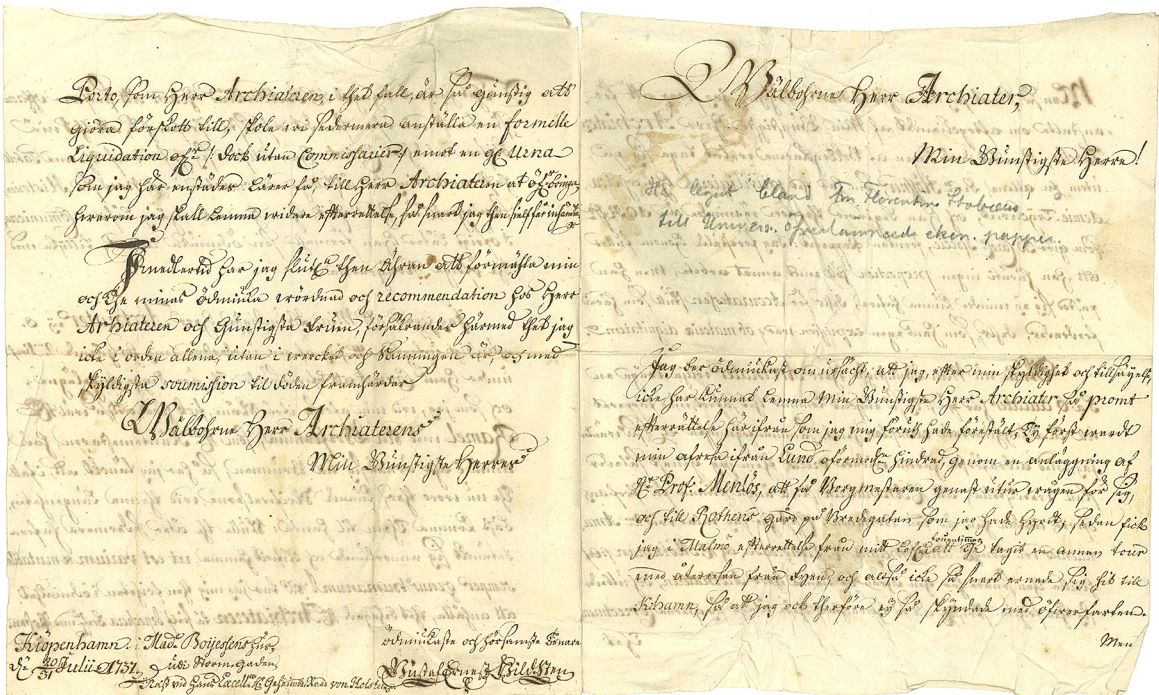 Porto, som Herr Archiateren, i thet fall, är så günstig att
giöra förskott till, skole wi sedermera anställa en formelle
Liquidation /: dock utan Commissarier :/ emot en Urna
som jag här enstädes lärer få till Herr Archiatern at
herom jag skall lemna widare efterrettelse, så snart jag then sielf får
Imedlertid har jag then ähran att förmähla min
och the minas ödmiuka wördnad och recommendation hos Herr
Arhiateren och Gunstigsta Fruen, försäkrandes härmed thet jag
icke i orden allena, utan i wercket och sanningen är, och med
skyldigsta soumission til döden framhärdar
Wälbohrne Herr Archiaterens
Min Gunstigste Herres
Kiöpenhamn i Mad. Boijesens hus,
uti Storm-Gaden,
d. 20/31 Julii A. 1737.
näst wid Hans Excell. H. Geheime Råd von Holsten
ödmiukaste och hörsamste tienare
Gustaf Ernest Bildsten
Wälbohrne Herr Archiater,
Min Gunstigste Herre!
Har legat bland Kilian Stobæus'
till Univers. öfverlämnade papper.
Jag ber ödmiukast om ursächt, att jag, efter min skyldighet och tillsäyelse,
icke har kunnat lemna Min Gunstigste Herr Archiater så promt
efterrättelse härifrån som jag mig förut hade förestält. Ty först wardt
min afresa ifrån Lund oförmodel. hindrad, genom en anläggning af
Hr Prof. Menlös, att få Borgmestaren genast utur wägen för sig,
och till Rothens gård på Bredegatan som jag hade hyrdt; sedan fick
jag i Malmö efterrettelse från mitt tagit en annan tour
med återresan från Fyen, och altså icke så snart ernade sig hit till
Kihamn, så att jag ock therföre ej så skyndade med öfwerfarten.
Men